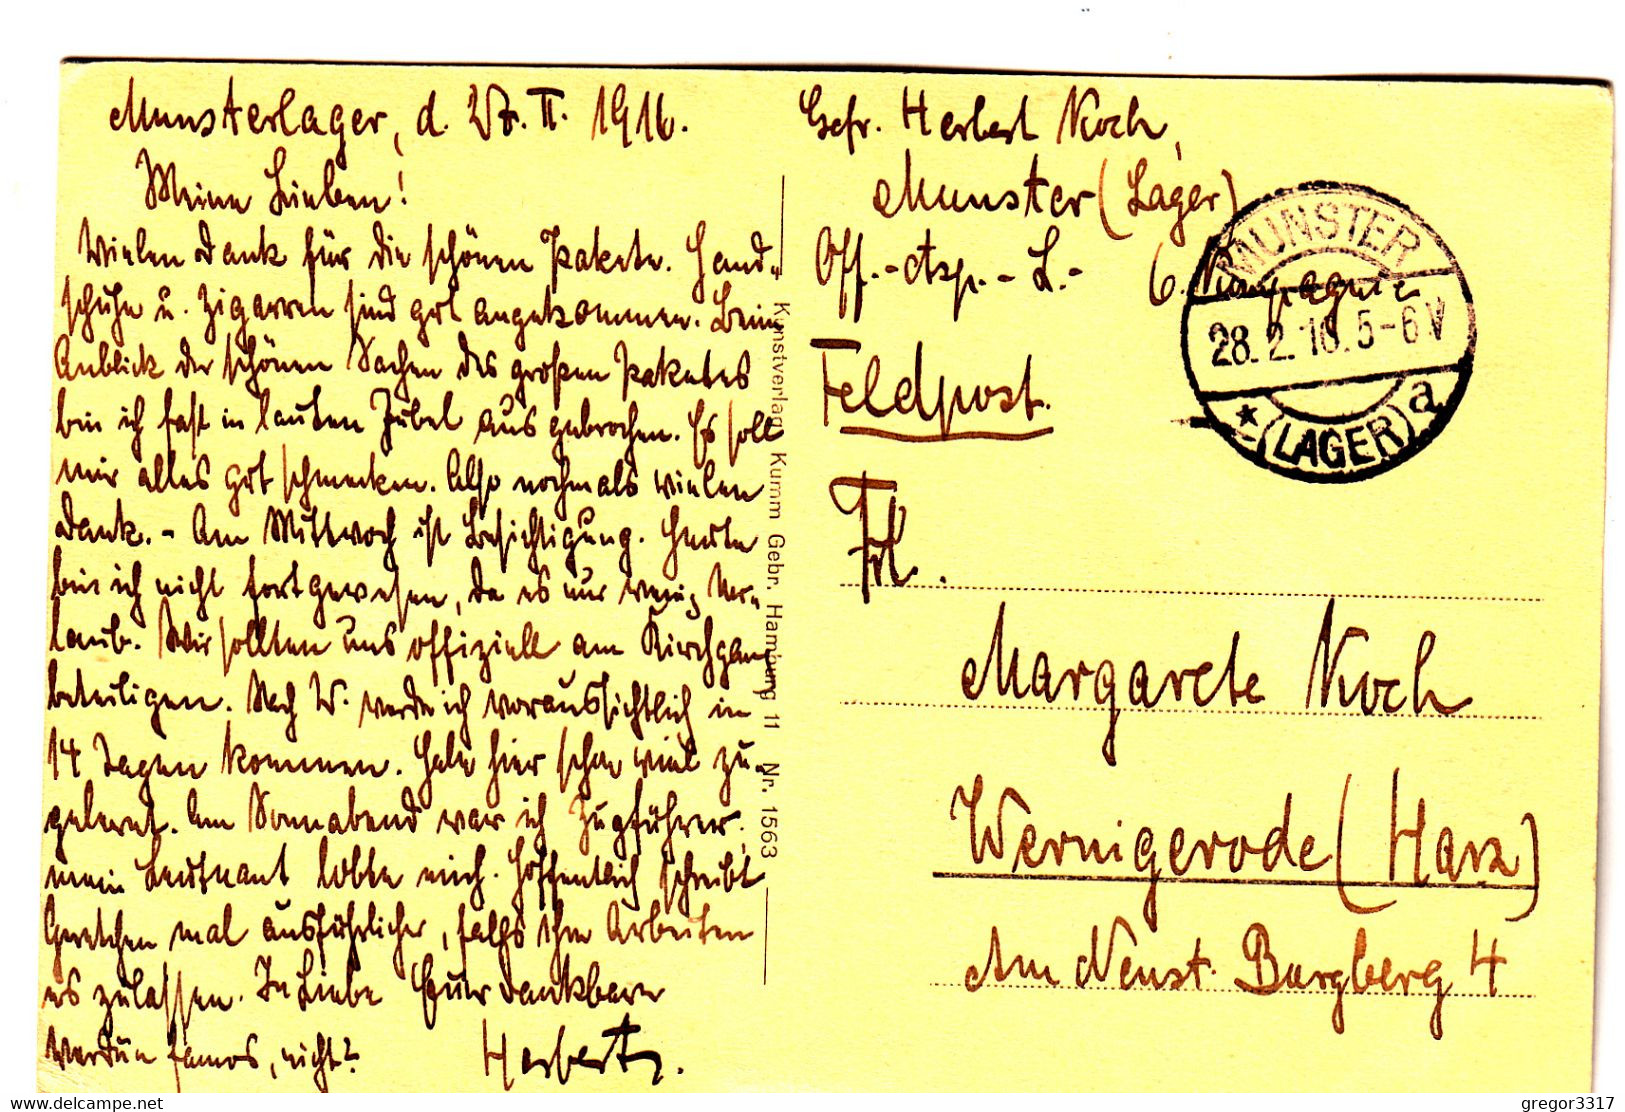 Munsterlager, d. 27. II. 1916.
Meine Lieben!
Vielen Dank für die schönen Pakete. Hand-
schuhe u. Zigarren sind gut angekommen. Beim
Anblick der schönen Sachen des großen Paketes
bin ich fast in lauten Jubel ausgebrochen. Es soll
mir alles gut schmecken. Also nochmals vielen
Dank. - Am Mittwoch ist Besichtigung. Heute
bin ich nicht fortgewesen, da es nur wenig Ver-
laub. Wir sollten uns offiziell am Kirchgang
beteiligen. Nach W. werde ich voraussichtlich in
14 Tagen kommen. Habe hier schon viel zu-
gelernt. Am Sonnabend war ich Zugführer,
mein Leutnant lobte mich. Hoffentlich schreibt
Gretchen mal ausführlicher, falls ihre Arbeiten
es zulassen. In Liebe Euer dankbarer
Verdun famos, nicht? Herbert.
Kunstverlag Kumm Gebr. Hamburg 11 Nr. 1563
Gefr. Herbert Koch,
Munster (Lager)
Off.-Asp.-L.- 6. Kompagnie
Feldpost.
MUNSTER
28.2.16.5-6V
* (LAGER) a
Frl.
Margarete Koch
Wernigerode (Harz)
Am Neust. Burgberg 4
gregor3317